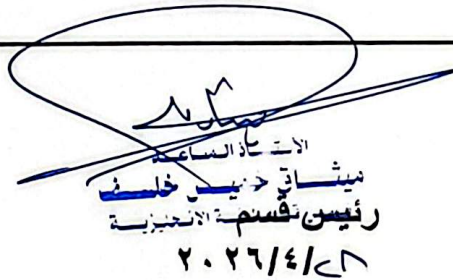 الاستاذ المساعد
ميثاق خميس خلف
رئيس قسم اللغة الانجليزية
٢٠٢٦/٤/٢٨